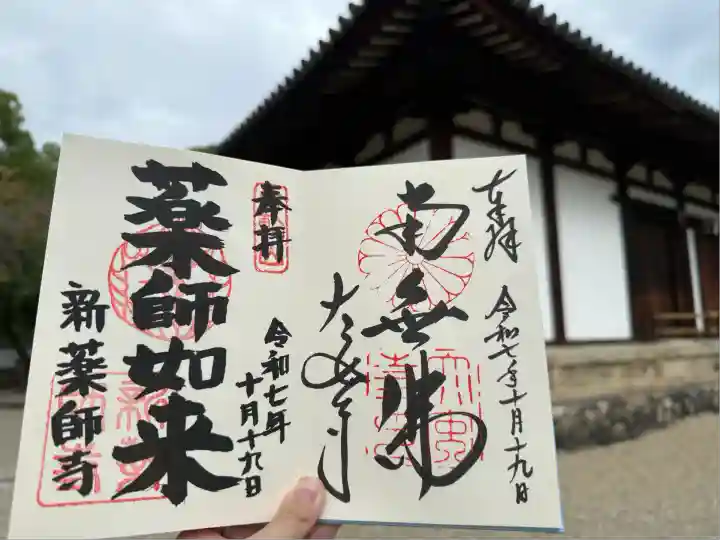 奉拝
令和七年十月十九日
南無佛
奉拝
令和七年
十月十九日
薬師如来
新薬師寺